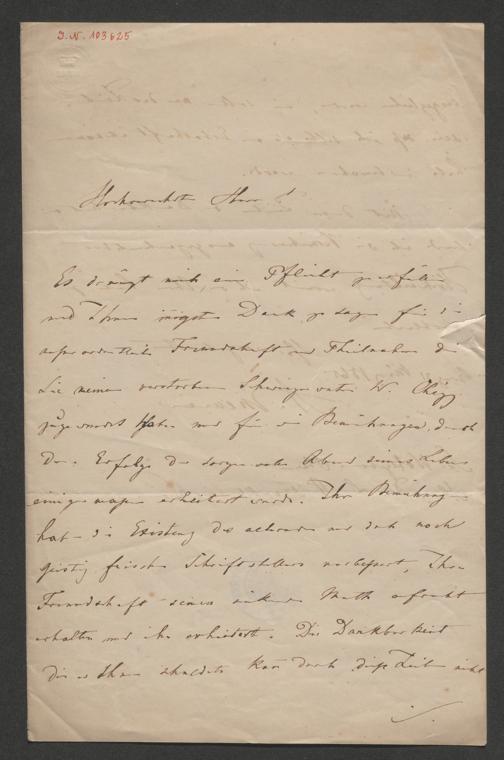 J.N. 103625
Hochverehrter Herr!
Es drängt mich eine Pflicht zu erfüllen
und Ihnen innigsten Dank zu sagen für die
außerordentliche Freundschaft und Theilnahme die
Sie meinem verstorbenen Schwiegervater W.
zugewendet haben und für die Bemühungen, durch
deren Erfolge der sorgenvolle Abend seines Lebens
einigermaßen erheitert wurde. Ihre Bemühung
hat die Existenz des alternden und doch noch
geistig frischen Schriftstellers verbessert, Ihre
Freundschaft seinen Muth
erhalten und ihn erheitert. Die Dankbarkeit
die er Ihnen schuldete kann durch diese Zeilen nicht